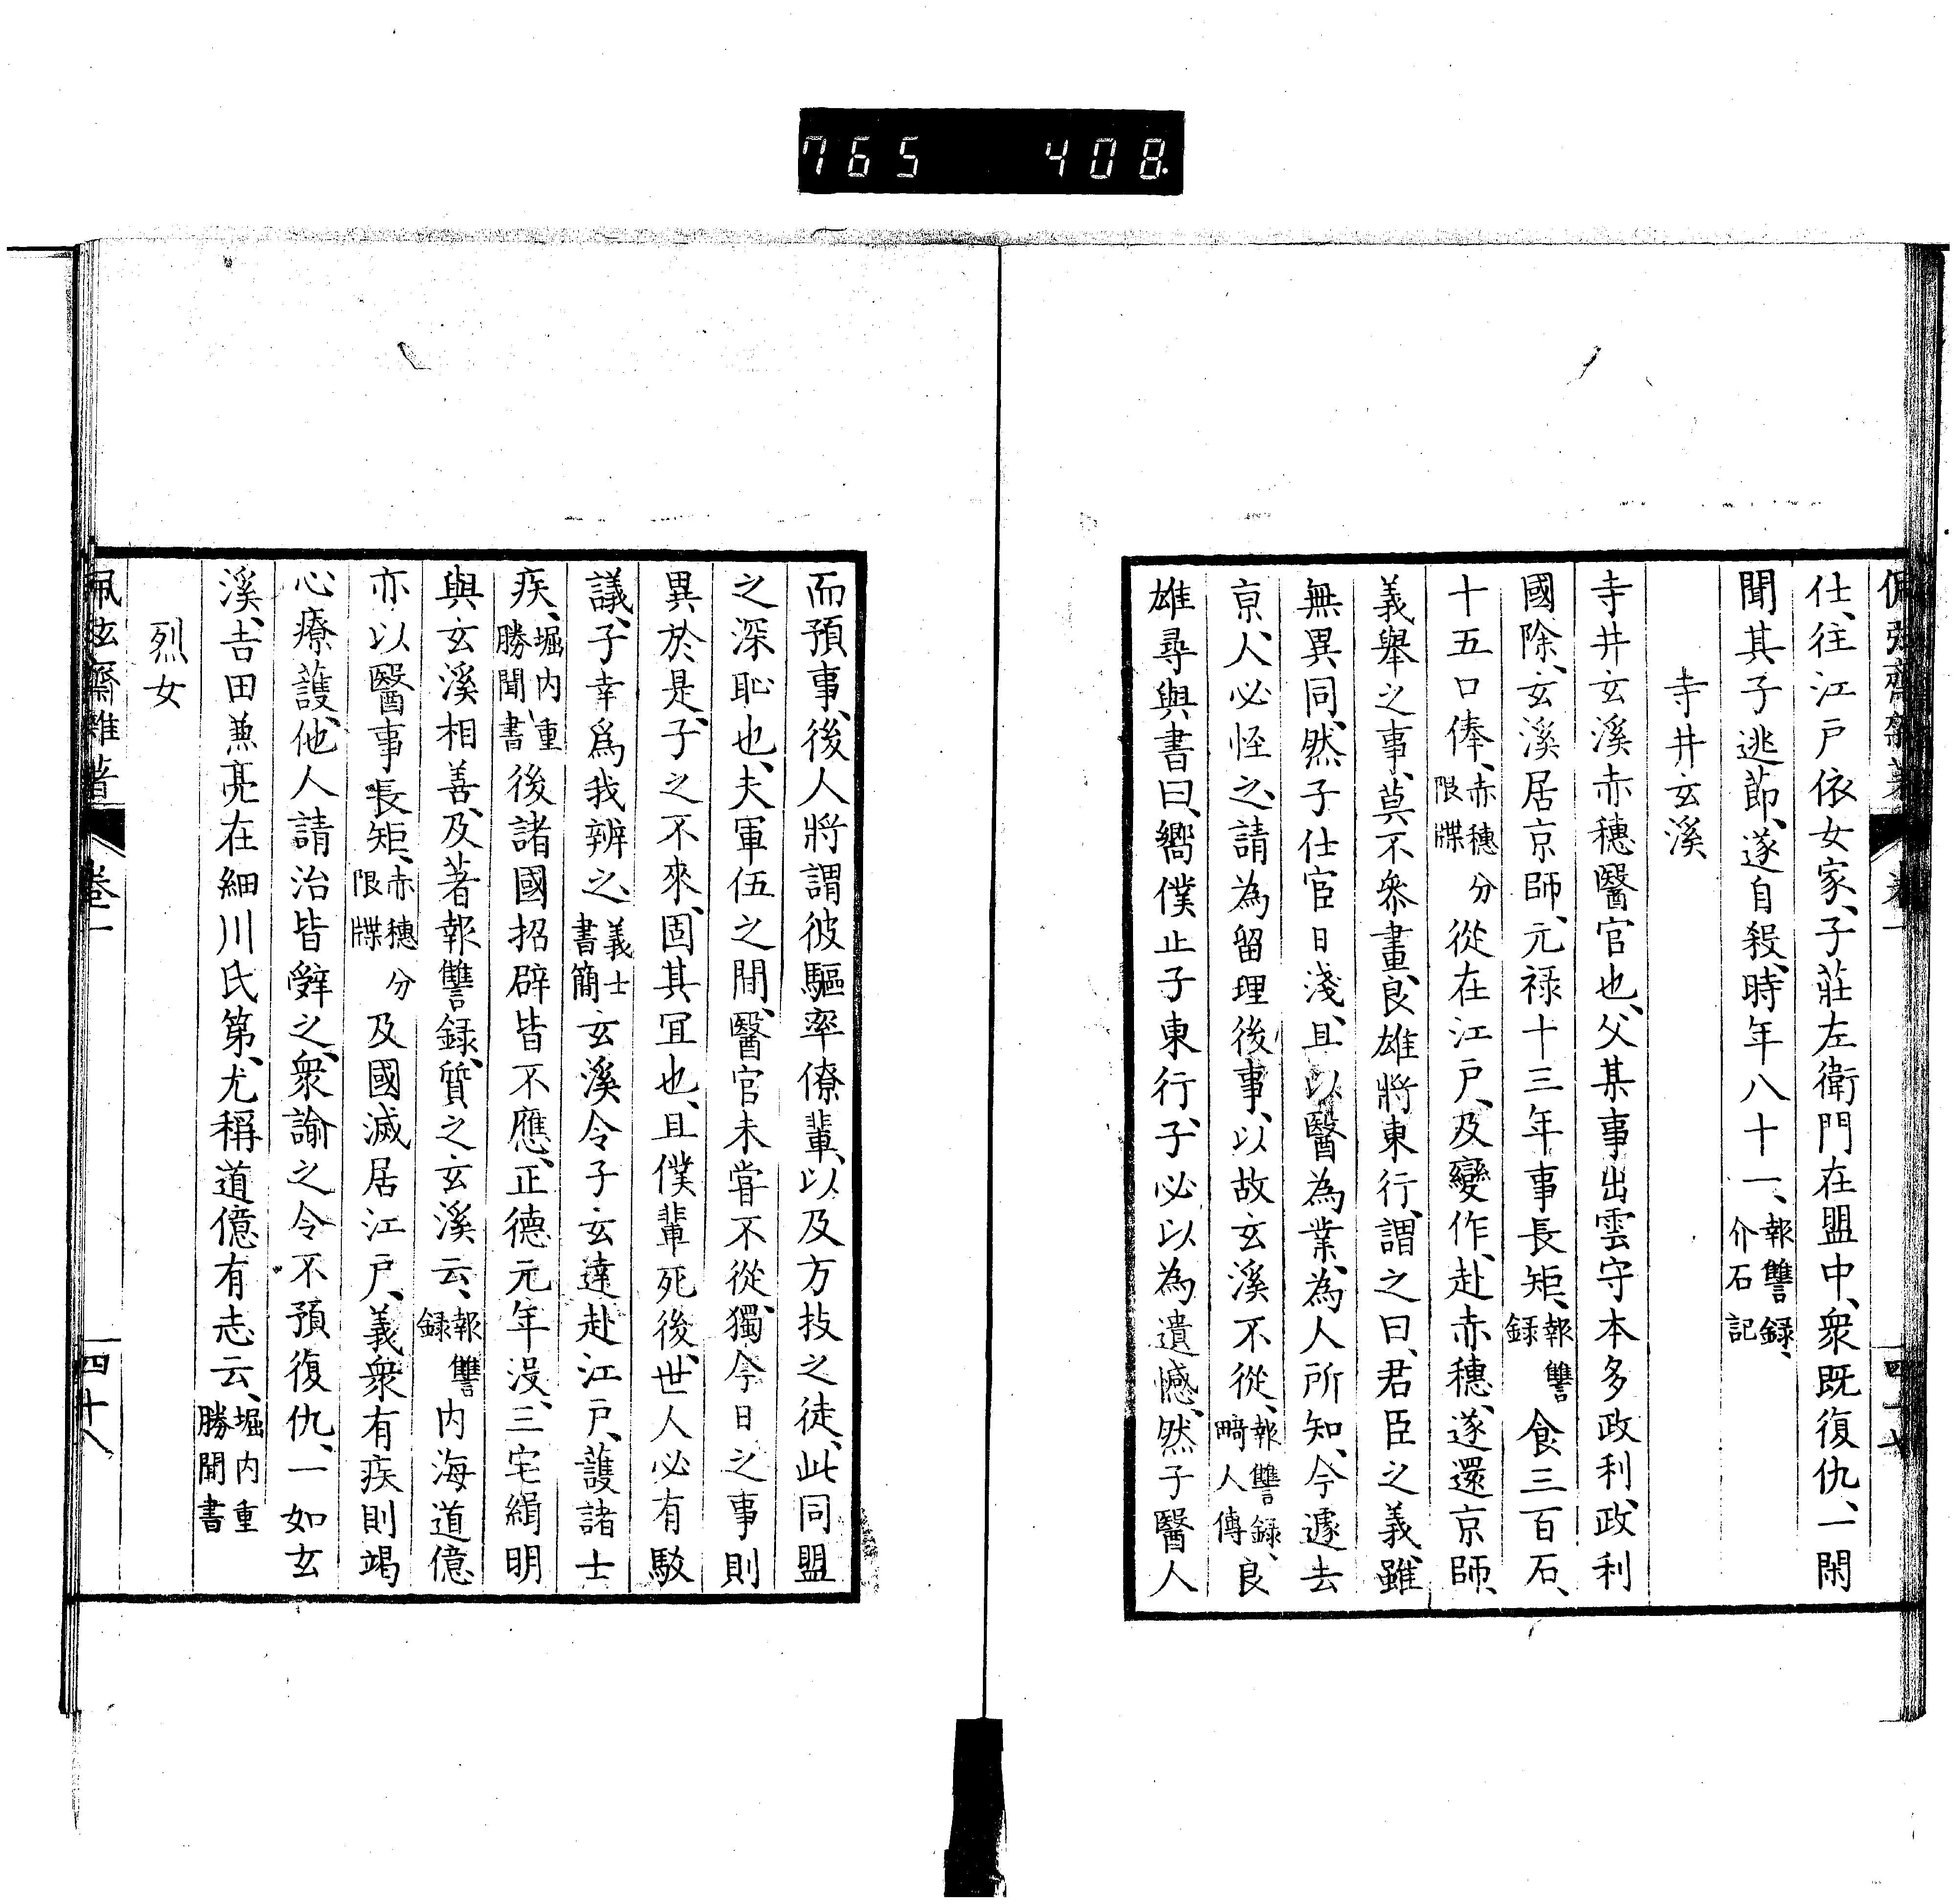 765 408.
佩弦齋雜著 卷一 四十七
仕、往江戸依女家、子莊左衛門在盟中、衆既復仇、一閑
聞其子逃節、遂自殺、時年八十一、報讐録、介石記
寺井玄溪
寺井玄溪赤穗醫官也、父某事出雲守本多政利、政利
國除、玄溪居京師、元禄十三年事長矩、報讐録食三百石、
十五口俸、赤穗分限牒從在江戸、及變作、赴赤穗、遂還京師、
義舉之事、莫不參畫、良雄將東行、謂之曰、君臣之義、雖
無異同、然子仕宦日淺、且以醫為業、為人所知、今遽去
京、人必怪之、請為留理後事、以故玄溪不從、報讐録、畸人傳良
雄尋與書曰、嚮僕止子東行、子必以為遺憾、然子醫人
而預事、後人將謂彼驅率僚輩、以及方技之徒、此同盟
之深恥也、夫軍伍之間、醫官未嘗不從、獨今日之事則
異於是、子之不來、固其冝也、且僕輩死後、世人必有駁
議、子幸爲我辨之、義士書簡玄溪令子玄達赴江戸、護諸士
疾、堀内重勝聞書後諸國招辟皆不應、正德元年没、三宅緝明
與玄溪相善、及著報讐録、質之玄溪云、報讐録内海道億
亦以醫事長矩、赤穗分限牒及國滅居江戸、義衆有疾則竭
心療護、他人請治皆辭之、衆諭之令不預復仇、一如玄
溪、吉田兼亮在細川氏第、尤稱道億有志云、堀内重勝聞書
烈女
佩弦齋雜著 卷一 四十八